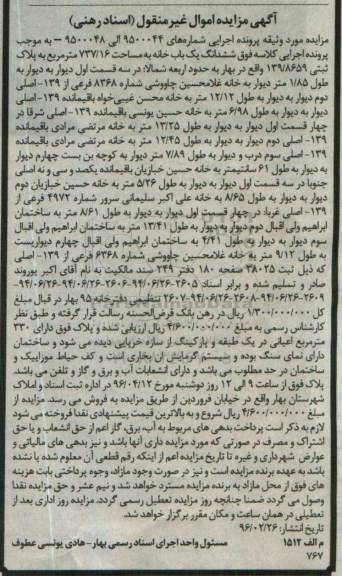 آگهی مزایده اموال غیرمنقول (اسناد رهنی)
مزایده مورد وثیقه پرونده اجرایی شماره‌های ۹۵۰۰۰۴۴ الی ۹۵۰۰۰۴۸ – به موجب
پرونده اجرایی کلاسه فوق ششدانگ یک باب خانه به مساحت ۷۳۷/۱۶ مترمربع به پلاک
ثبتی ۱۳۹/۸۶۵۹ واقع در بهار به حدود اربعه شمالا: در سه قسمت اول دیوار به دیوار به
طول ۱/۸۵ متر دیوار به خانه غلامحسین چاووشی شماره ۸۳۶۸ فرعی از ۱۳۹- اصلی
دوم دیوار به دیوار به طول ۱۲/۱۲ متر به خانه محسن غیبی‌خواه باقیمانده ۱۳۹- اصلی
دیوار به دیوار به طول ۶/۹۸ متر به خانه حسین یونسی باقیمانده ۱۳۹- اصلی شرقا در
چهار قسمت اول دیوار به دیوار به طول ۱۳/۲۵ متر به خانه مرتضی مرادی باقیمانده
۱۳۹- اصلی دوم دیوار به دیوار به طول ۱۲/۴۵ متر به خانه مرتضی مرادی باقیمانده
۱۳۹- اصلی سوم درب و دیوار به طول ۷/۸۹ متر دیوار به کوچه بن بست چهارم دیوار
به دیوار به طول ۶۱ سانتیمتر به خانه حسین خبازیان باقیمانده یکصد و سی و نه اصلی
جنوبا در سه قسمت اول دیوار به دیوار به طول ۵/۲۶ متر به خانه حسین خبازیان دوم
دیوار به دیوار به طول ۸/۶۵ به خانه علی اکبر سلیمانی سرور شماره ۴۹۷۲ فرعی از
۱۳۹- اصلی غربا: در چهار قسمت اول دیوار به دیوار به طول ۸/۶۱ متر به ساختمان
ابراهیم ولی اقبال دوم دیوار به دیوار به طول ۱۳/۴۱ متر به ساختمان ابراهیم ولی اقبال
سوم دیوار به دیوار به طول ۴/۴۱ به ساختمان ابراهیم ولی اقبال چهارم دیواریست
به طول ۹/۱۲ متر به خانه غلامحسین چاووشی شماره ۶۳۶۸ فرعی از ۱۳۹- اصلی
که ذیل ثبت ۳۸۰۲۵ صفحه ۱۸۰ دفتر ۲۴۹ سند مالکیت به نام آقای اکبر پوروند
صادر و تسلیم شده و برابر اسناد ۲۶۰۵-۹۴/۰۶/۲۶ ۲۶۰۶-۹۴/۰۶/۲۶-
۲۶۰۹-۹۴/۰۶/۲۶ ۲۶۰۸-۹۴/۰۶/۲۶ ۲۶۰۷- تنظیمی دفترخانه ۹۵ بهار در قبال مبلغ
کل ۱/۳۰۰/۰۰۰/۰۰۰ ریال در رهن بانک قرض‌الحسنه رسالت قرار گرفته و طبق نظر
کارشناس رسمی به مبلغ ۴/۶۰۰/۰۰۰/۰۰۰ ریال ارزیابی شده و پلاک فوق دارای ۳۳۰
مترمربع اعیانی در یک طبقه و پارکینگ از سازه خرپایی دیده می شود و ساختمان
دارای نمای سنگ بوده و سیستم گرمایش آن بخاری است و کف حیاط موزاییک و
ساختمان در حد مطلوب می باشد و دارای انشعابات آب و برق و گاز و تلفن می باشد.
پلاک فوق از ساعت ۹ الی ۱۲ روز دوشنبه مورخ ۹۶/۰۴/۱۲ در اداره ثبت اسناد و املاک
شهرستان بهار واقع در خیابان فروردین از طریق مزایده به فروش می رسد. مزایده از
مبلغ ۴/۶۰۰/۰۰۰/۰۰۰ ریال شروع و به بالاترین قیمت پیشنهادی نقدا فروخته می شود
لازم به ذکر است پرداخت بدهی های مربوط به آب، برق، گاز اعم از حق انشعاب و یا حق
اشتراک و مصرف در صورتی که مورد مزایده دارای آنها باشد و نیز بدهی های مالیاتی و
عوارض شهرداری و غیره تا تاریخ مزایده اعم از اینکه رقم قطعی آن معلوم شده یا نشده
باشد به عهده برنده مزایده است و نیز در صورت وجود مازاد، وجوه پرداختی بابت هزینه
های فوق از محل مازاد به برنده مزایده مسترد خواهد شد و نیم عشر و حق مزایده نقدا
وصول می گردد ضمنا چنانچه روز مزایده تعطیل رسمی گردد، مزایده روز اداری بعد از
تعطیلی در همان ساعت و مکان مقرر برگزار خواهد شد.
تاریخ انتشار: ۹۶/۰۲/۲۶
م الف ۱۵۱۲ مسئول واحد اجرای اسناد رسمی بهار- هادی یونسی عطوف
۷۶۷